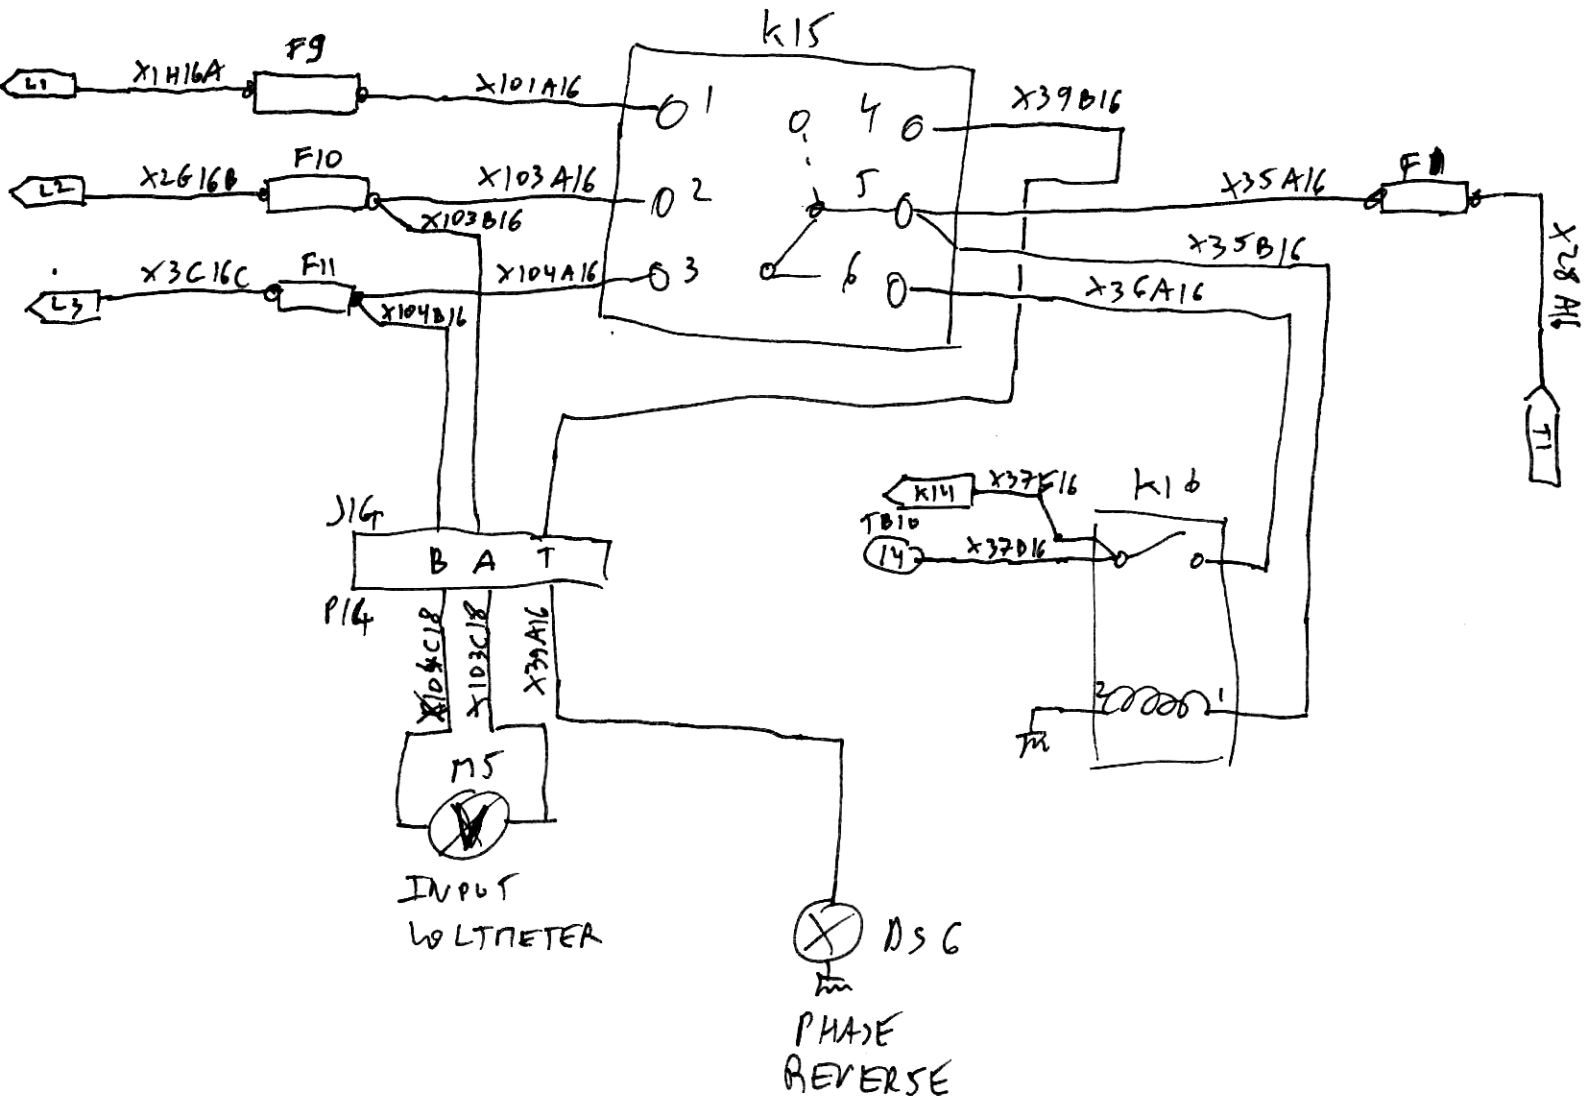 K15
F9
L1
X1H16A
X101A16
1
4
X39B16
F10
L2
X2G16B
X103A16
2
5
X35A16
X103B16
X35B16
F11
L3
X3C16C
X104A16
3
6
X36A16
X104B16
X28A16
T1
K14
X37E16
K16
TB10
14
X37D16
J14
B A T
P14
X104C18
X103C18
X39A16
2
1
M5
V
INPUT
VOLTMETER
DS6
PHASE
REVERSE